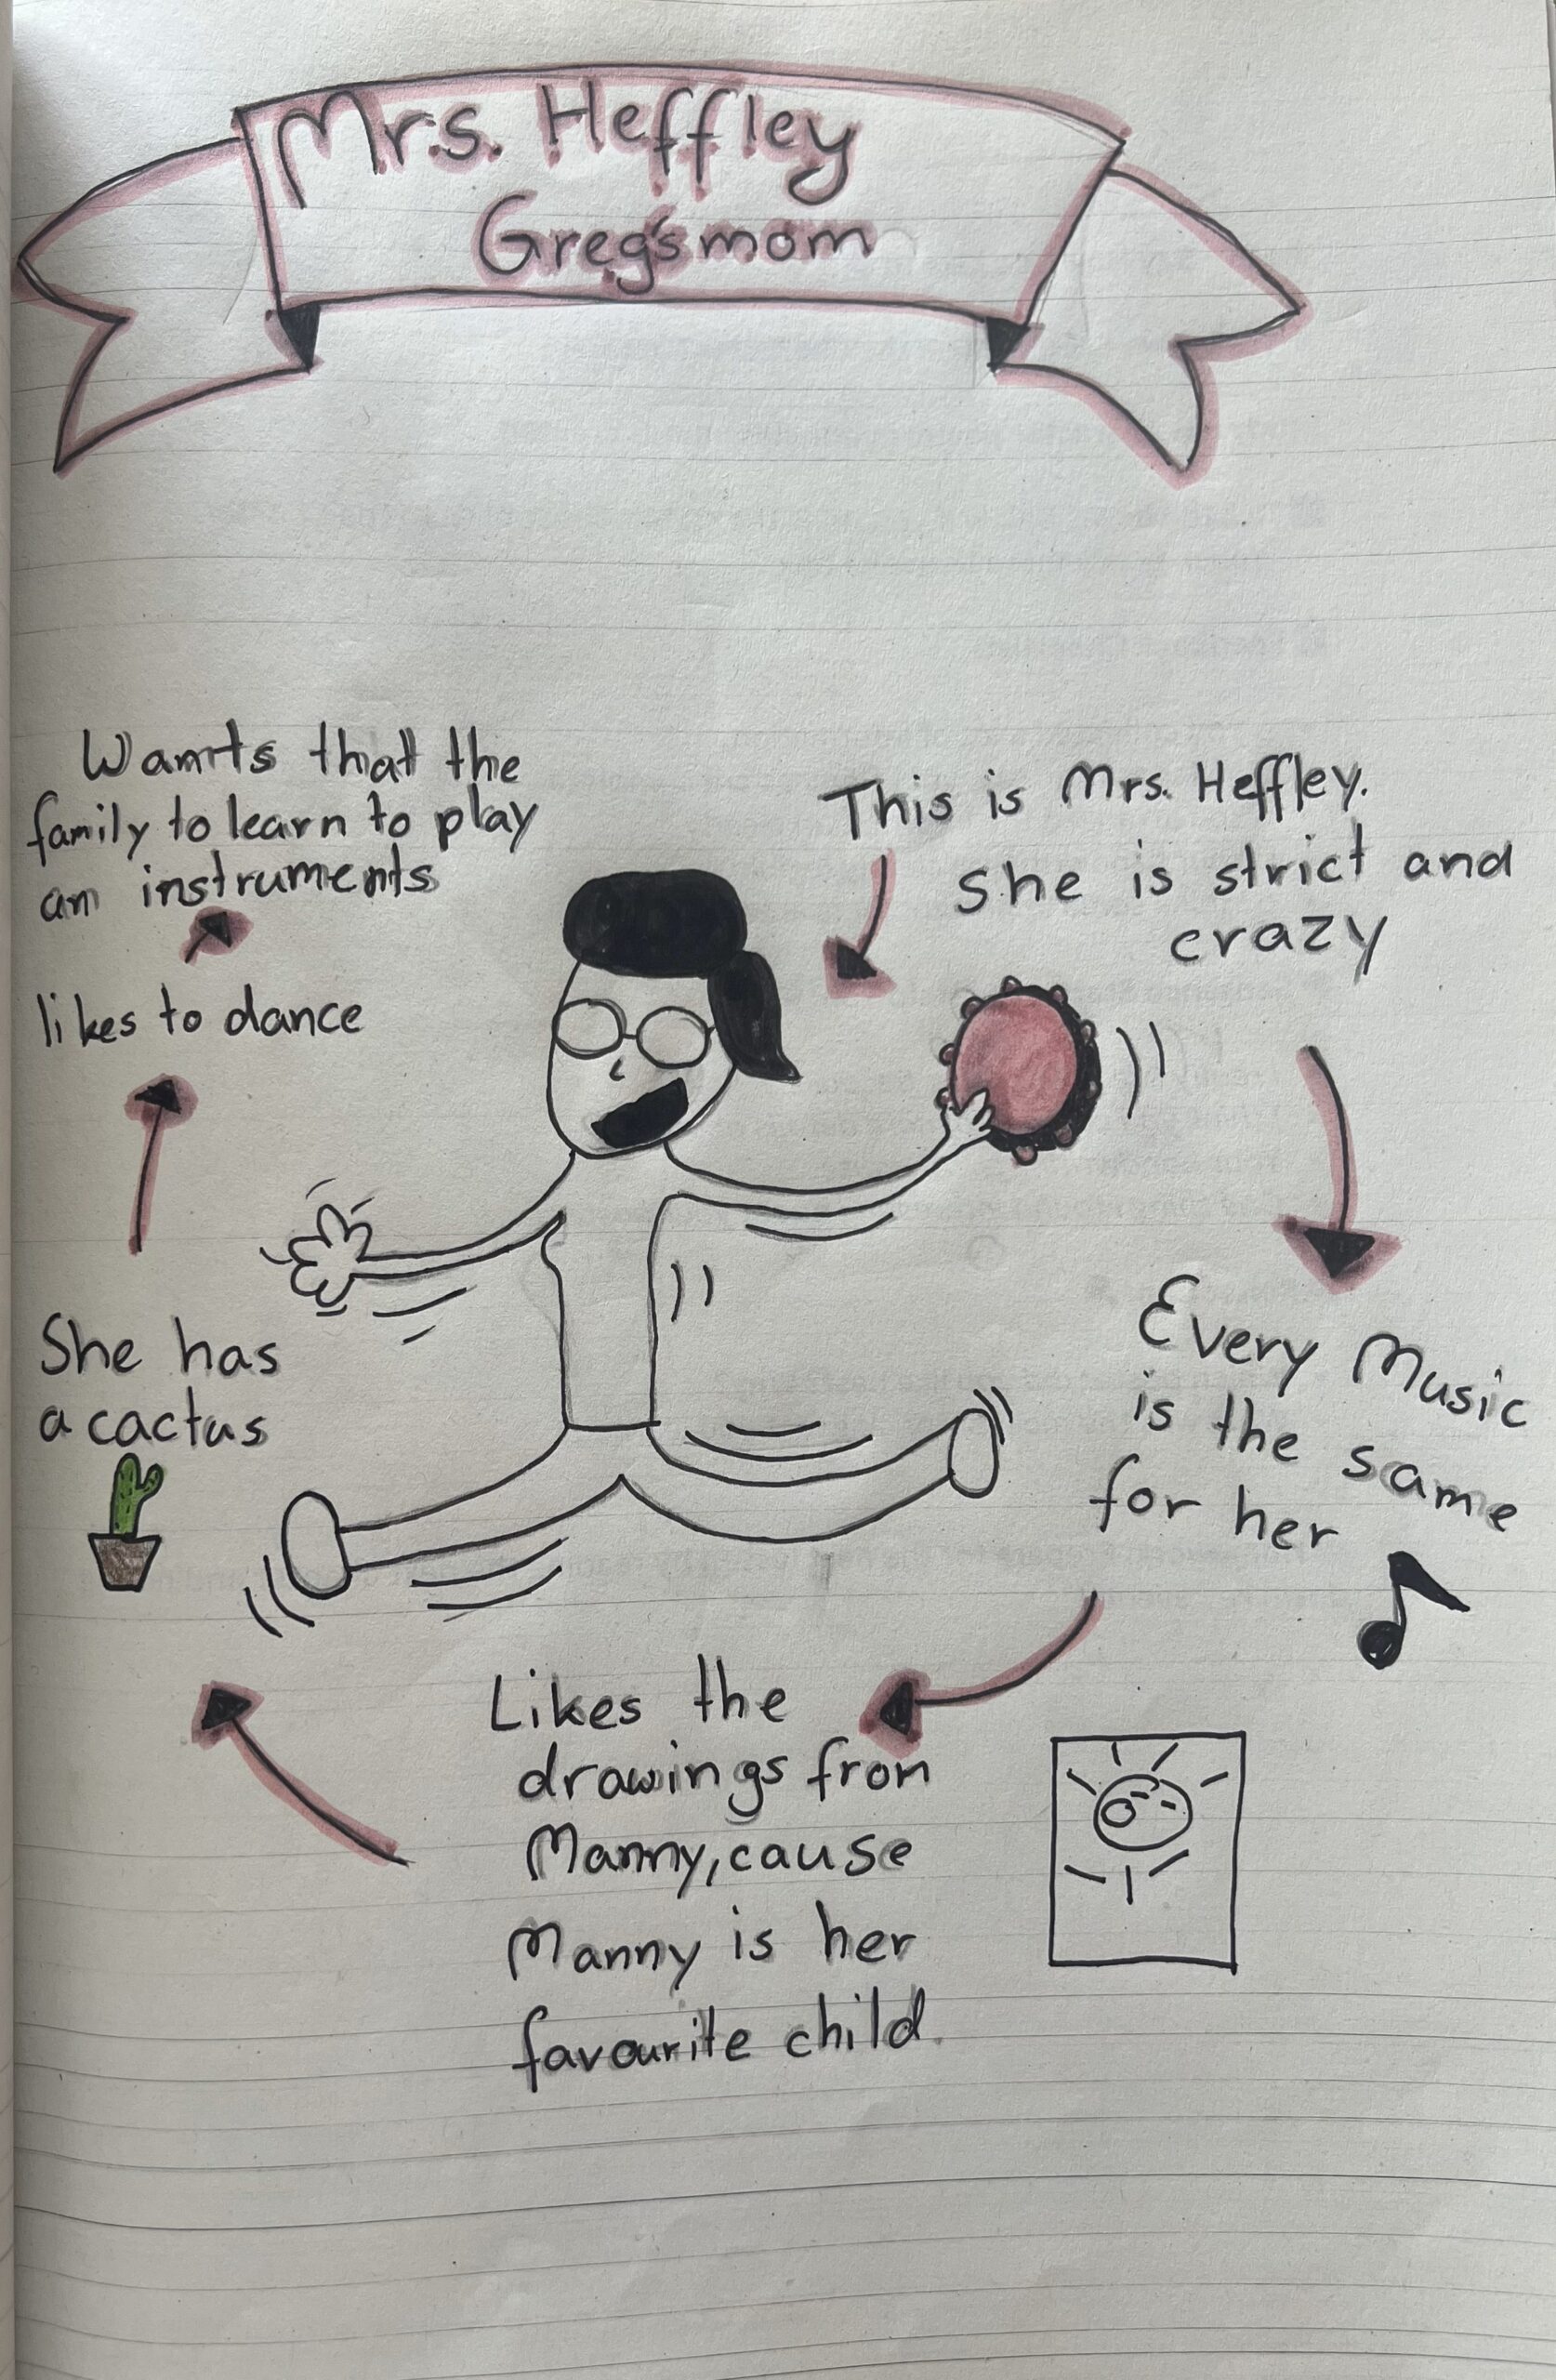 Mrs. Heffley
Greg's mom
This is Mrs. Heffley.
She is strict and
crazy
Every Music
is the same
for her
Likes the
drawings from
Manny, cause
Manny is her
favourite child.
She has
a cactus
likes to dance
Wants that the
family to learn to play
an instruments